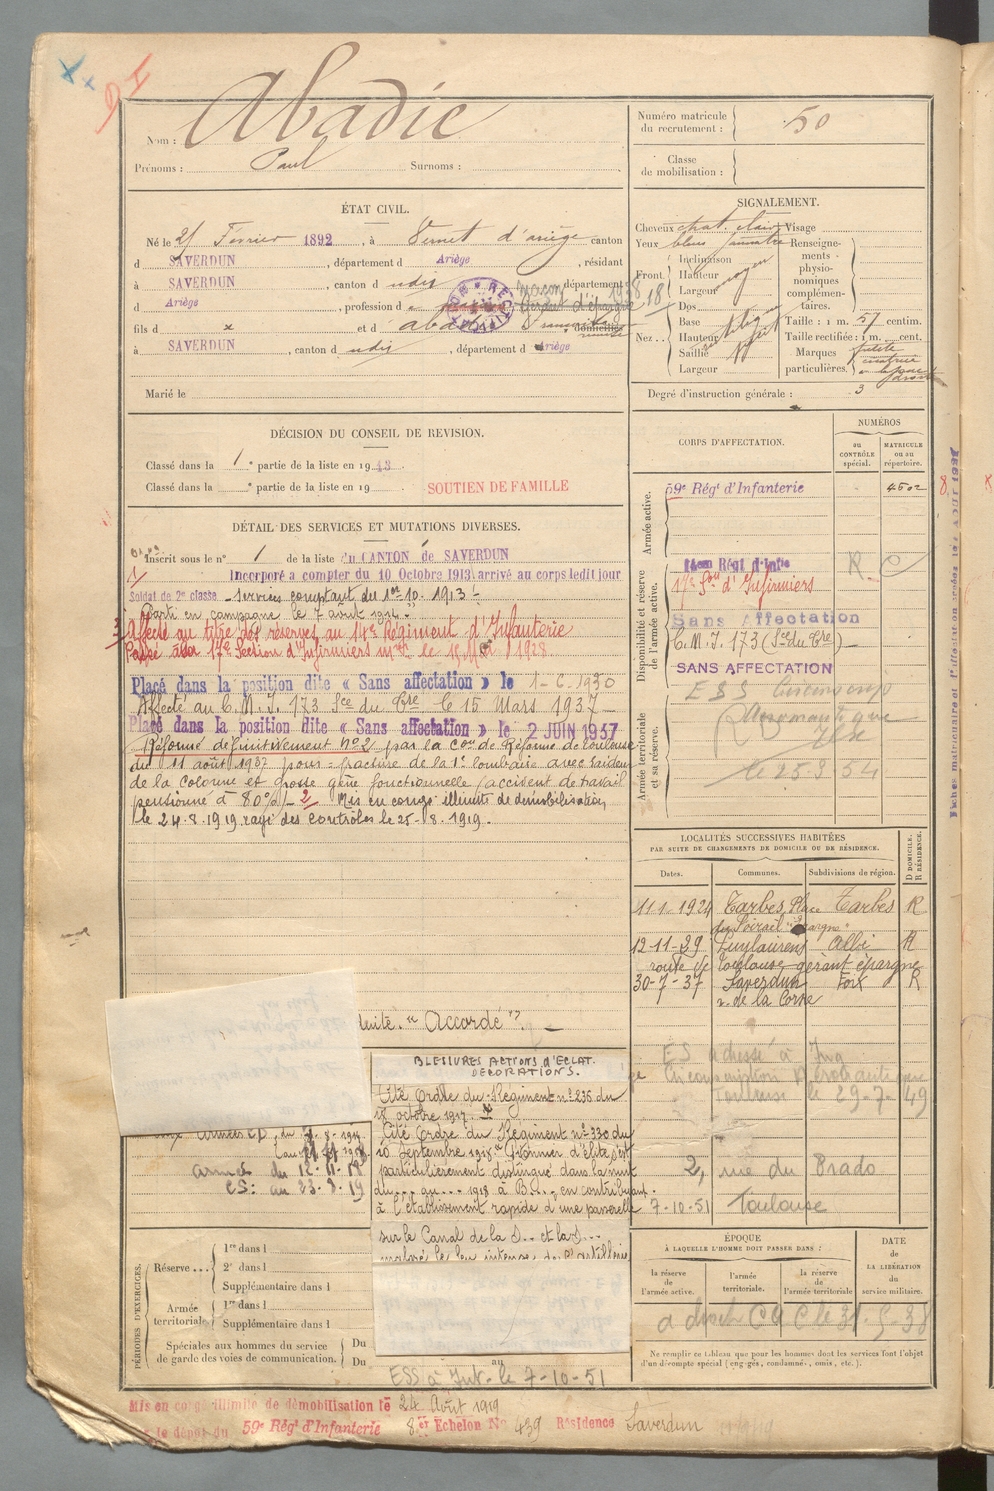 D I
Nom : Abadie
Prénoms : Paul Surnoms :
Numéro matricule
du recrutement : 50
Classe
de mobilisation :
ÉTAT CIVIL.
Né le 25 Février 1892, à Vernet d'ariège canton
d SAVERDUN, département d Ariège, résidant
à SAVERDUN, canton d udit, département
d Ariège, profession d
fils d x et d abadie domiciliés
à SAVERDUN, canton d udit, département d Ariège
Marié le
SIGNALEMENT.
Cheveux chat. clair Visage
Yeux bleus
Front Inclinaison
Hauteur
Largeur moyen
Nez .. Dos
Base
Hauteur
Saillie
Largeur
Renseigne-
ments
physio-
nomiques
complémen-
taires.
Taille : 1 m. 57 centim.
Taille rectifiée : 1 m. cent.
Marques
particulières. petite
cicatrice
Degré d'instruction générale : 3
DÉCISION DU CONSEIL DE REVISION.
Classé dans la 1e partie de la liste en 1913.
Classé dans la e partie de la liste en 19 SOUTIEN DE FAMILLE
DÉTAIL DES SERVICES ET MUTATIONS DIVERSES.
Inscrit sous le n° 1 de la liste du CANTON de SAVERDUN
Incorporé a compter du 10 Octobre 1913 arrivé au corps ledit jour
Soldat de 2e classe - services comptant du 1er 10. 1913 -
Parti en campagne le 7 août 1914.
Affecté au titre des réserves au 14e Régiment d'Infanterie
Passé à la 17e Section d'Infirmiers mres le 15 Mai 1928
Placé dans la position dite « Sans affectation » le 1-6.1930
Affecté au C. M. I. 173 Sce du Gre le 15 Mars 1937
Placé dans la position dite « Sans affectation » le 2 JUIN 1937
Réformé définitivement N° 2 par la Con de Réforme de toulouse
du 11 août 1937 pour = fracture de la 1e lombaire avec raideur
de la colonne et grosse gêne fonctionnelle (accident de travail
pensionné à 80%) - 2/ Mis en congé illimité de démobilisation
le 24.8.1919 rayé des contrôles le 25-8.1919.
CORPS D'AFFECTATION.
NUMÉROS
au
CONTRÔLE
spécial.
MATRICULE
ou au
répertoire.
Armée active.
59e Régt d'Infanterie 4502
Disponibilité et réserve
de l'armée active.
14eme Régt d'Infie R. C
17e Son d'Infirmiers
Sans Affectation
C. M. I. 173 (Sce du Gre)
SANS AFFECTATION
Armée territoriale
et sa réserve.
ESS Circonscrip
le 25.3.54
LOCALITÉS SUCCESSIVES HABITÉES
PAR SUITE DE CHANGEMENTS DE DOMICILE OU DE RÉSIDENCE.
Dates. Communes. Subdivisions de région. D DOMICILE.
R RÉSIDENCE.
11 1-1924 Tarbes, Place Tarbes R
"Epargne"
12-11-29 Puylaurens Albi R
route de toulouse gérant épargne
30-7-37 Saverdun Foix R
r. de la Corse
ES adressé à
Toulouse le 29-7-49
2, rue du Prado
7-10-51 Toulouse
denité. "Accordé".
BLESSURES ACTIONS d'ECLAT.
DECORATIONS.
Cité Ordre du Régiment n° 236 du
18 octobre 1917.
Cité Ordre du Régiment n° 330 du
10 Septembre 1918 "Grenadier d'élite s'est
particulièrement distingué dans la nuit
du... au... 1918 à B... en contribuant
à l'établissement rapide d'une passerelle
sur le Canal de la S... et la S...
malgré le feu intense de l'artillerie
aux Armées CD, du 7-8-1914
au 11-11-1918
Armée du 12-11-18
CS: au 23-8-19
PÉRIODES D'EXERCICES.
Réserve ... 1re dans l
2e dans l
Supplémentaire dans l
Armée
territoriale 1re dans l
Supplémentaire dans l
Spéciales aux hommes du service
de garde des voies de communication. Du
Du au
ESS à Int. le 7-10-51
ÉPOQUE
À LAQUELLE L'HOMME DOIT PASSER DANS :
la réserve
de
l'armée active.
l'armée
territoriale.
la réserve
de
l'armée territoriale
DATE
de
LA LIBÉRATION
du
service militaire.
Ne remplir ce tableau que pour les hommes dont les services font l'objet
d'un décompte spécial (engagés, condamnés, omis, etc.).
Mis en congé illimité de démobilisation le 24 Août 1919
le dépôt du 59e Régt d'Infanterie 8er Echelon No 439 Résidence Saverdun